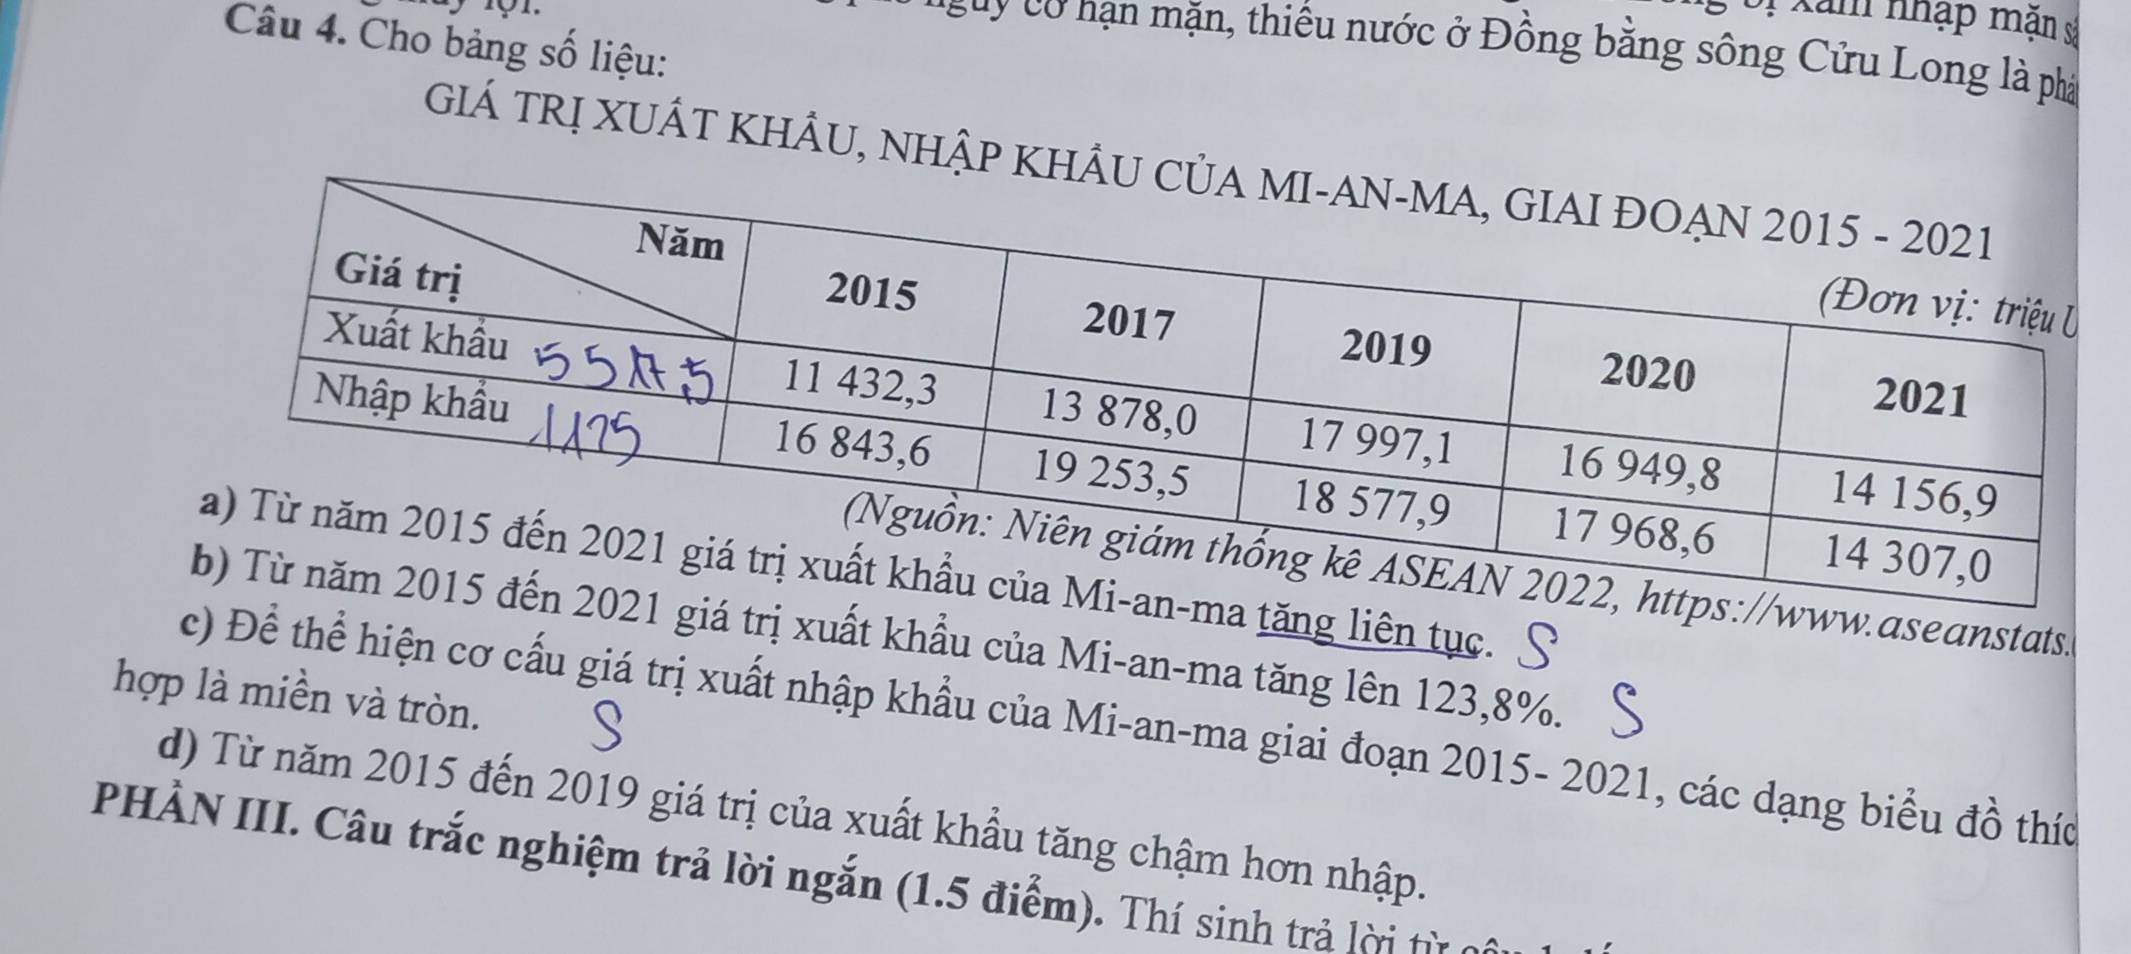 nguy cơ hạn mặn, thiếu nước ở Đồng bằng sông Cửu Long là phá
Câu 4. Cho bảng số liệu:
GIÁ TRỊ XUẤT KHẨU, NHẬP KHẨU CỦA MI-AN-MA, GIAI ĐOẠN 2015 - 2021
(Đơn vị: triệu U
Giá trị Năm 2015 2017 2019 2020 2021
Xuất khẩu 11 432,3 13 878,0 17 997,1 16 949,8 14 156,9
Nhập khẩu 1175 16 843,6 19 253,5 18 577,9 17 968,6 14 307,0
(Nguồn: Niên giám thống kê ASEAN 2022, https://www.aseanstats.
a) Từ năm 2015 đến 2021 giá trị xuất khẩu của Mi-an-ma tăng liên tục. S
b) Từ năm 2015 đến 2021 giá trị xuất khẩu của Mi-an-ma tăng lên 123,8%. S
c) Để thể hiện cơ cấu giá trị xuất nhập khẩu của Mi-an-ma giai đoạn 2015- 2021, các dạng biểu đồ thíc
hợp là miền và tròn. S
d) Từ năm 2015 đến 2019 giá trị của xuất khẩu tăng chậm hơn nhập.
PHẦN III. Câu trắc nghiệm trả lời ngắn (1.5 điểm). Thí sinh trả lời từ